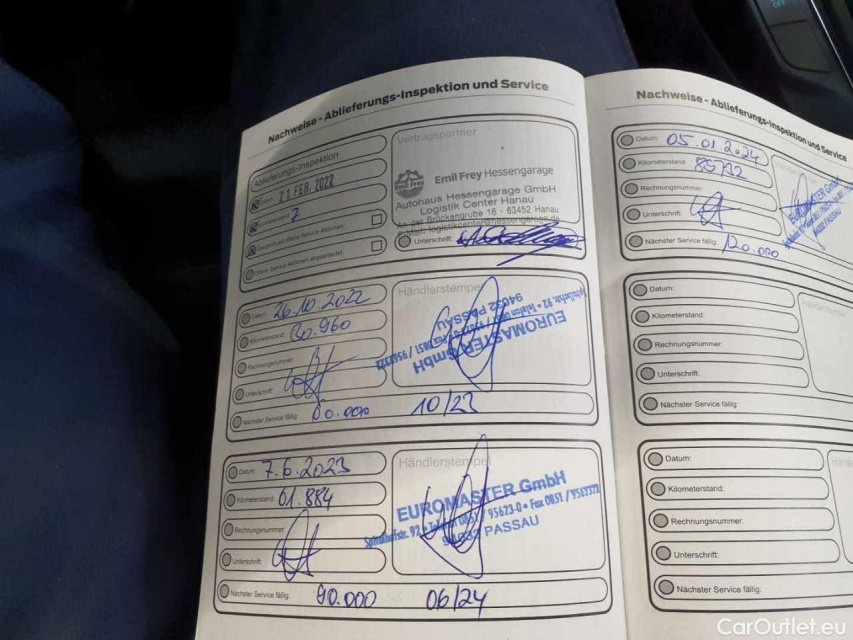 Nachweise - Ablieferungs-Inspektion und Service
Ablieferungs-Inspektion
Datum: 21 FEB. 2022
7
Offene Service Aktionen abgearbeitet:
Vertragspartner
Emil Frey Hessengarage
Emil Frey
Autohaus Hessengarage GmbH
Logistik Center Hanau
An der Brückengrube 16 - 63452 Hanau
E-Mail: logistikcenter@hessengarage.de
Unterschrift:
Datum: 26.10.2022
Kilometerstand: 30.960
Rechnungsnummer:
Unterschrift:
Nächster Service fällig: 60.000 10/23
Händlerstempel
EUROMASTER GmbH
94032 PASSAU
Datum: 7.6.2023
Kilometerstand: 61.884
Rechnungsnummer:
Unterschrift:
Nächster Service fällig: 90.000 06/24
Händlerstempel
EUROMASTER GmbH
Spitalhofstr. 92 • Telefon 0851 / 95623-0 • Fax 0851 / 9562322
94032 PASSAU
Nachweise - Ablieferungs-Inspektion und Service
Datum: 05.01.2024
Kilometerstand: 85792
Rechnungsnummer:
Unterschrift:
Nächster Service fällig: 120.000
EUROMASTER GmbH
94032 PASSAU
Datum:
Kilometerstand:
Rechnungsnummer:
Unterschrift:
Nächster Service fällig:
Datum:
Kilometerstand:
Rechnungsnummer:
Unterschrift:
Nächster Service fällig:
CarOutlet.eu